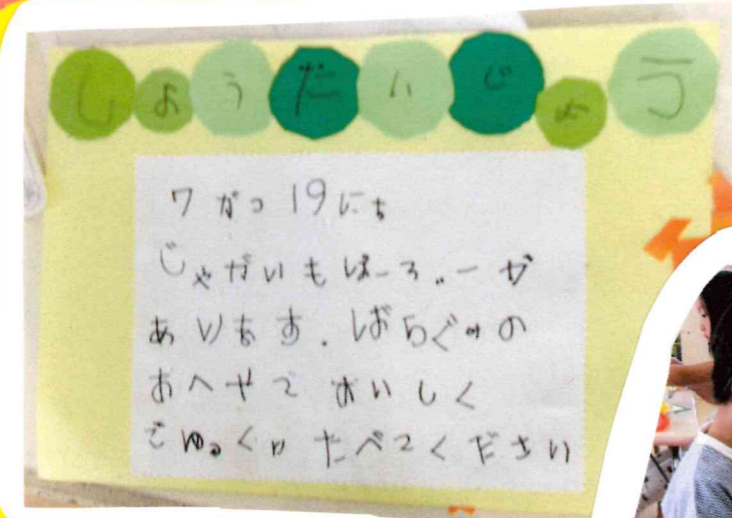 しょうだいじょう
7がつ19にち
じゃがいもぱーてぃーが
あります.ばらぐみの
おへやで おいしく
ごゆっくり たべてください